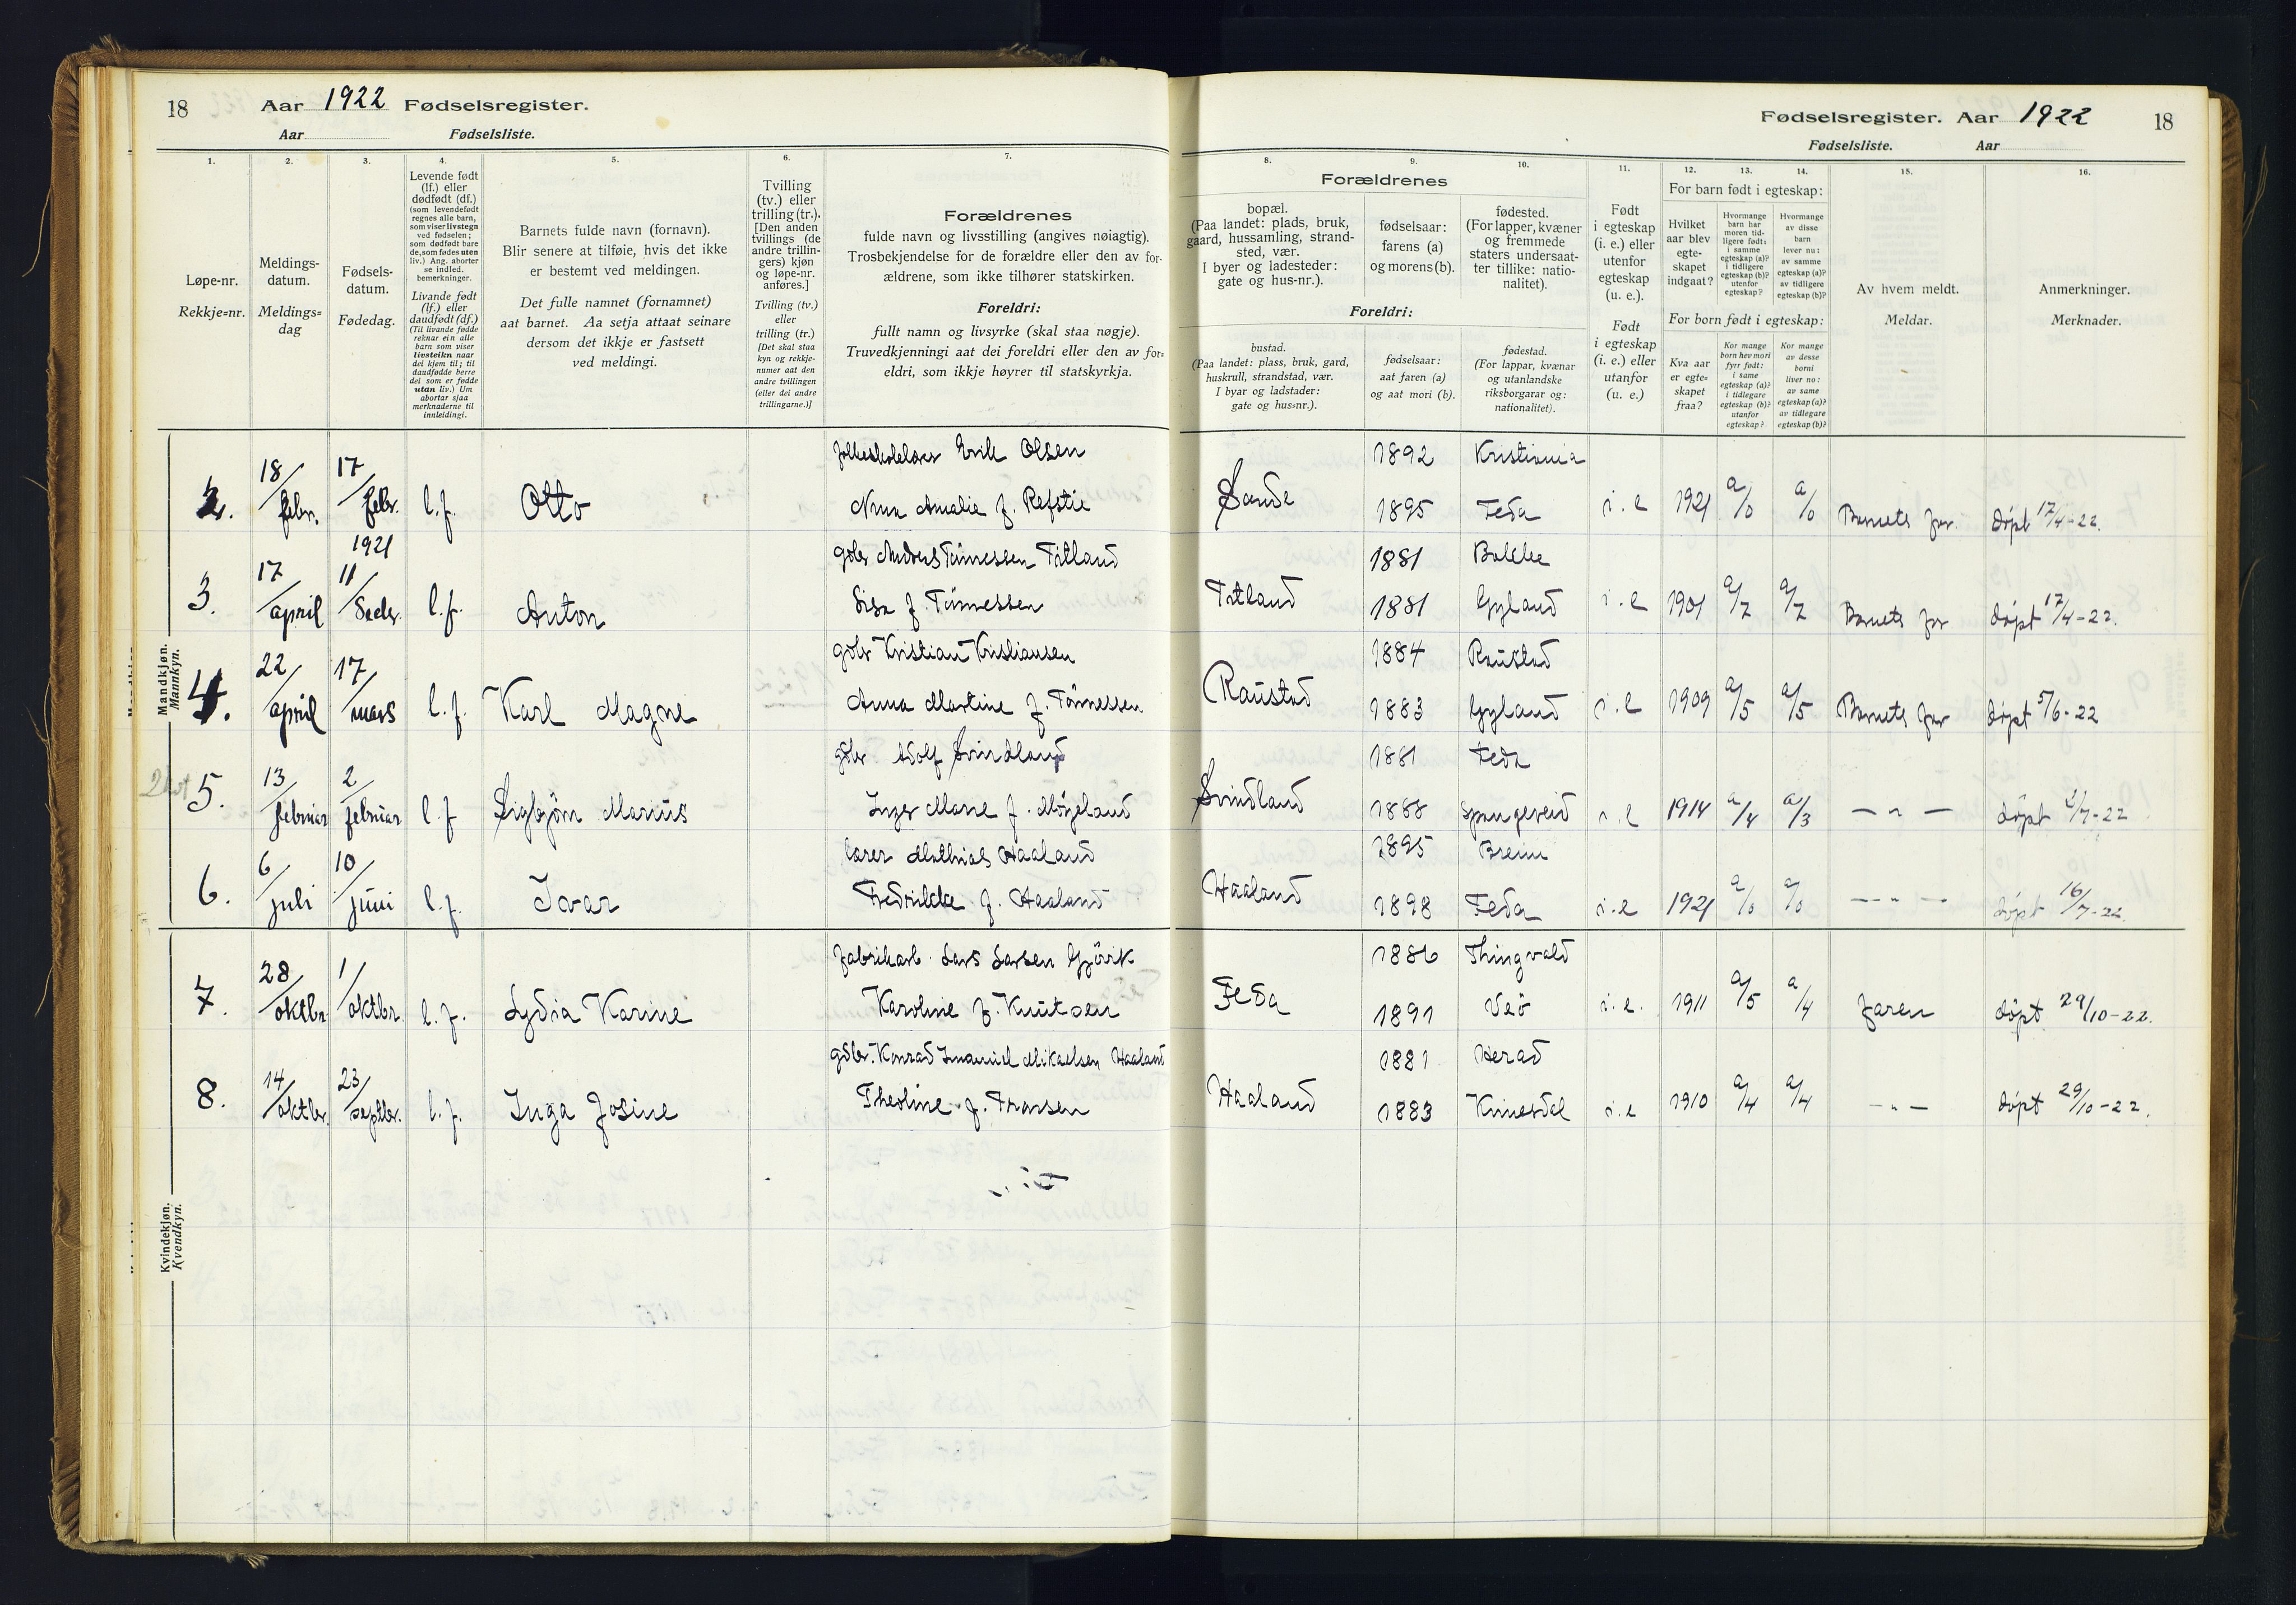 18 Aar 1922 Fødselsregister.
Aar Fødselsliste.
Fødselsregister. Aar 1922 18
Fødselsliste. Aar
1. 2. 3. 4. 5. 6. 7.
Løpe-nr.
Rekkje-nr.
Meldings-
datum.
Meldings-
dag
Fødsels-
datum.
Fødedag.
Levende født
(lf.) eller
dødfødt (df.)
(som levendefødt
regnes alle barn,
som viser livstegn
ved fødselen;
som dødfødt bare
de, som fødes uten
liv.) Ang. aborter
se indled.
bemerkninger.
Livande født
(lf.) eller
daudfødt (df.)
(Til livande fødde
reknar ein alle
barn som viser
livsteikn naar
dei kjem til; til
daudfødde berre
dei som er fødde
utan liv.) Um
abortar sjaa
merknaderne til
innleidingi.
Barnets fulde navn (fornavn).
Blir senere at tilføie, hvis det ikke
er bestemt ved meldingen.
Det fulle namnet (fornamnet)
aat barnet. Aa setja attaat seinare
dersom det ikkje er fastsett
ved meldingi.
Tvilling
(tv.) eller
trilling (tr.).
[Den anden
tvillings (de
andre trillin-
gers) kjøn
og løpe-nr.
anføres.]
Tvilling (tv.)
eller
trilling (tr.)
[Det skal staa
kyn og rekkje-
numer aat den
andre tvillingen
(eller dei andre
trillingarne.)]
Forældrenes
fulde navn og livsstilling (angives nøiagtig).
Trosbekjendelse for de forældre eller den av for-
ældrene, som ikke tilhører statskirken.
Foreldri:
fullt namn og livsyrke (skal staa nøgje).
Truvedkjenningi aat dei foreldri eller den av for-
eldri, som ikkje høyrer til statskyrkja.
8. 9. 10. 11. 12. 13. 14. 15. 16.
Forældrenes
bopæl.
(Paa landet: plads, bruk,
gaard, hussamling, strand-
sted, vær.
I byer og ladesteder:
gate og hus-nr.).
fødselsaar:
farens (a)
og morens (b).
fødested.
(For lapper, kvæner
og fremmede
staters undersaat-
ter tillike: natio-
nalitet).
Foreldri:
bustad.
(Paa landet: plass, bruk, gard,
huskrull, strandstad, vær.
I byar og ladstader:
gate og hus-nr.).
fødselsaar:
aat faren (a)
og aat mori (b).
fødestad.
(For lappar, kvænar
og utanlandske
riksborgarar og:
nationalitet).
Født
i egteskap
(i. e.) eller
utenfor
egteskap
(u. e.).
Født
i egteskap
(i. e.) eller
utanfor
(u. e.)
For barn født i egteskap:
Hvilket
aar blev
egte-
skapet
indgaat?
Hvormange
barn har
moren tid-
ligere født:
i samme
egteskap (a)?
i tidligere
egteskap (b)?
utenfor
egteskap?
Hvormange
av disse
barn
lever nu:
av samme
egteskap (a)?
av tidligere
egteskap (b)?
For born født i egteskap:
Kva aar
er egte-
skapet
fraa?
Kor mange
born hev mori
fyrr født:
i same
egteskap (a)?
i tidlegare
egteskap (b)?
utanfor
egteskap?
Kor mange
av desse
borni
liver no:
av same
egteskap (a)?
av tidlegare
egteskap (b)?
Av hvem meldt.
Meldar.
Anmerkninger.
Merknader.
Mandkjøn.
Mannkyn.
Folkeskolelærer Erik Olsen 1892 Kristiania
2. 18/febr. 17/febr. l.f. Otto Nina Amalie f. Refstie Sande 1895 Feda i.e 1921 a/0 a/0 Barnets far døpt 17/4-22.
1921 gdbr Anders Tønnessen Titland 1881 Bakke
3. 17/april 11/decbr. l.f. Anton Lisa f. Tønnessen Titland 1881 Gyland i.e 1901 a/7 a/7 Barnets far døpt 17/4-22.
gdbr Kristian Kristiansen 1884 Raustad
4. 22/april 17/mars l.f. Karl Magne Anna Martine f. Tønnessen Raustad 1883 Gyland i.e 1909 a/5 a/5 Barnets far døpt 5/6-22
gdbr Adolf Svindland 1881 Feda
5. 13/februar 2/februar l.f Sigbjørn Marius Inger Marie f. Møgeland Svindland 1888 Spangereid i.e 1914 a/4 a/3 — " — døpt 2/7-22
lærer Mathias Haaland 1895 Breim
6. 6/juli 10/juni l.f. Ivar Fredrikke f. Haaland Haaland 1898 Feda i.e 1921 a/0 a/0 — " — døpt 16/7-22.
Fabrikarb. Lars Larsen Gjörvik 1886 Thingvold
7. 28/oktbr. 1/oktbr. l.f. Lydia Karine Karoline f. Knutsen Feda 1891 Veö i.e. 1911 a/5 a/4 faren døpt 29/10-22.
gdbr. Konrad Imanuel Mikaelsen Haaland 1881 Herad
8. 14/oktbr. 23/septbr. l.f. Inga Josine Theoline f. Transen Haaland 1883 Kvinesdal i.e 1910 a/4 a/4 — " — døpt 29/10-22.
Kvindekjøn.
Kvendkyn.